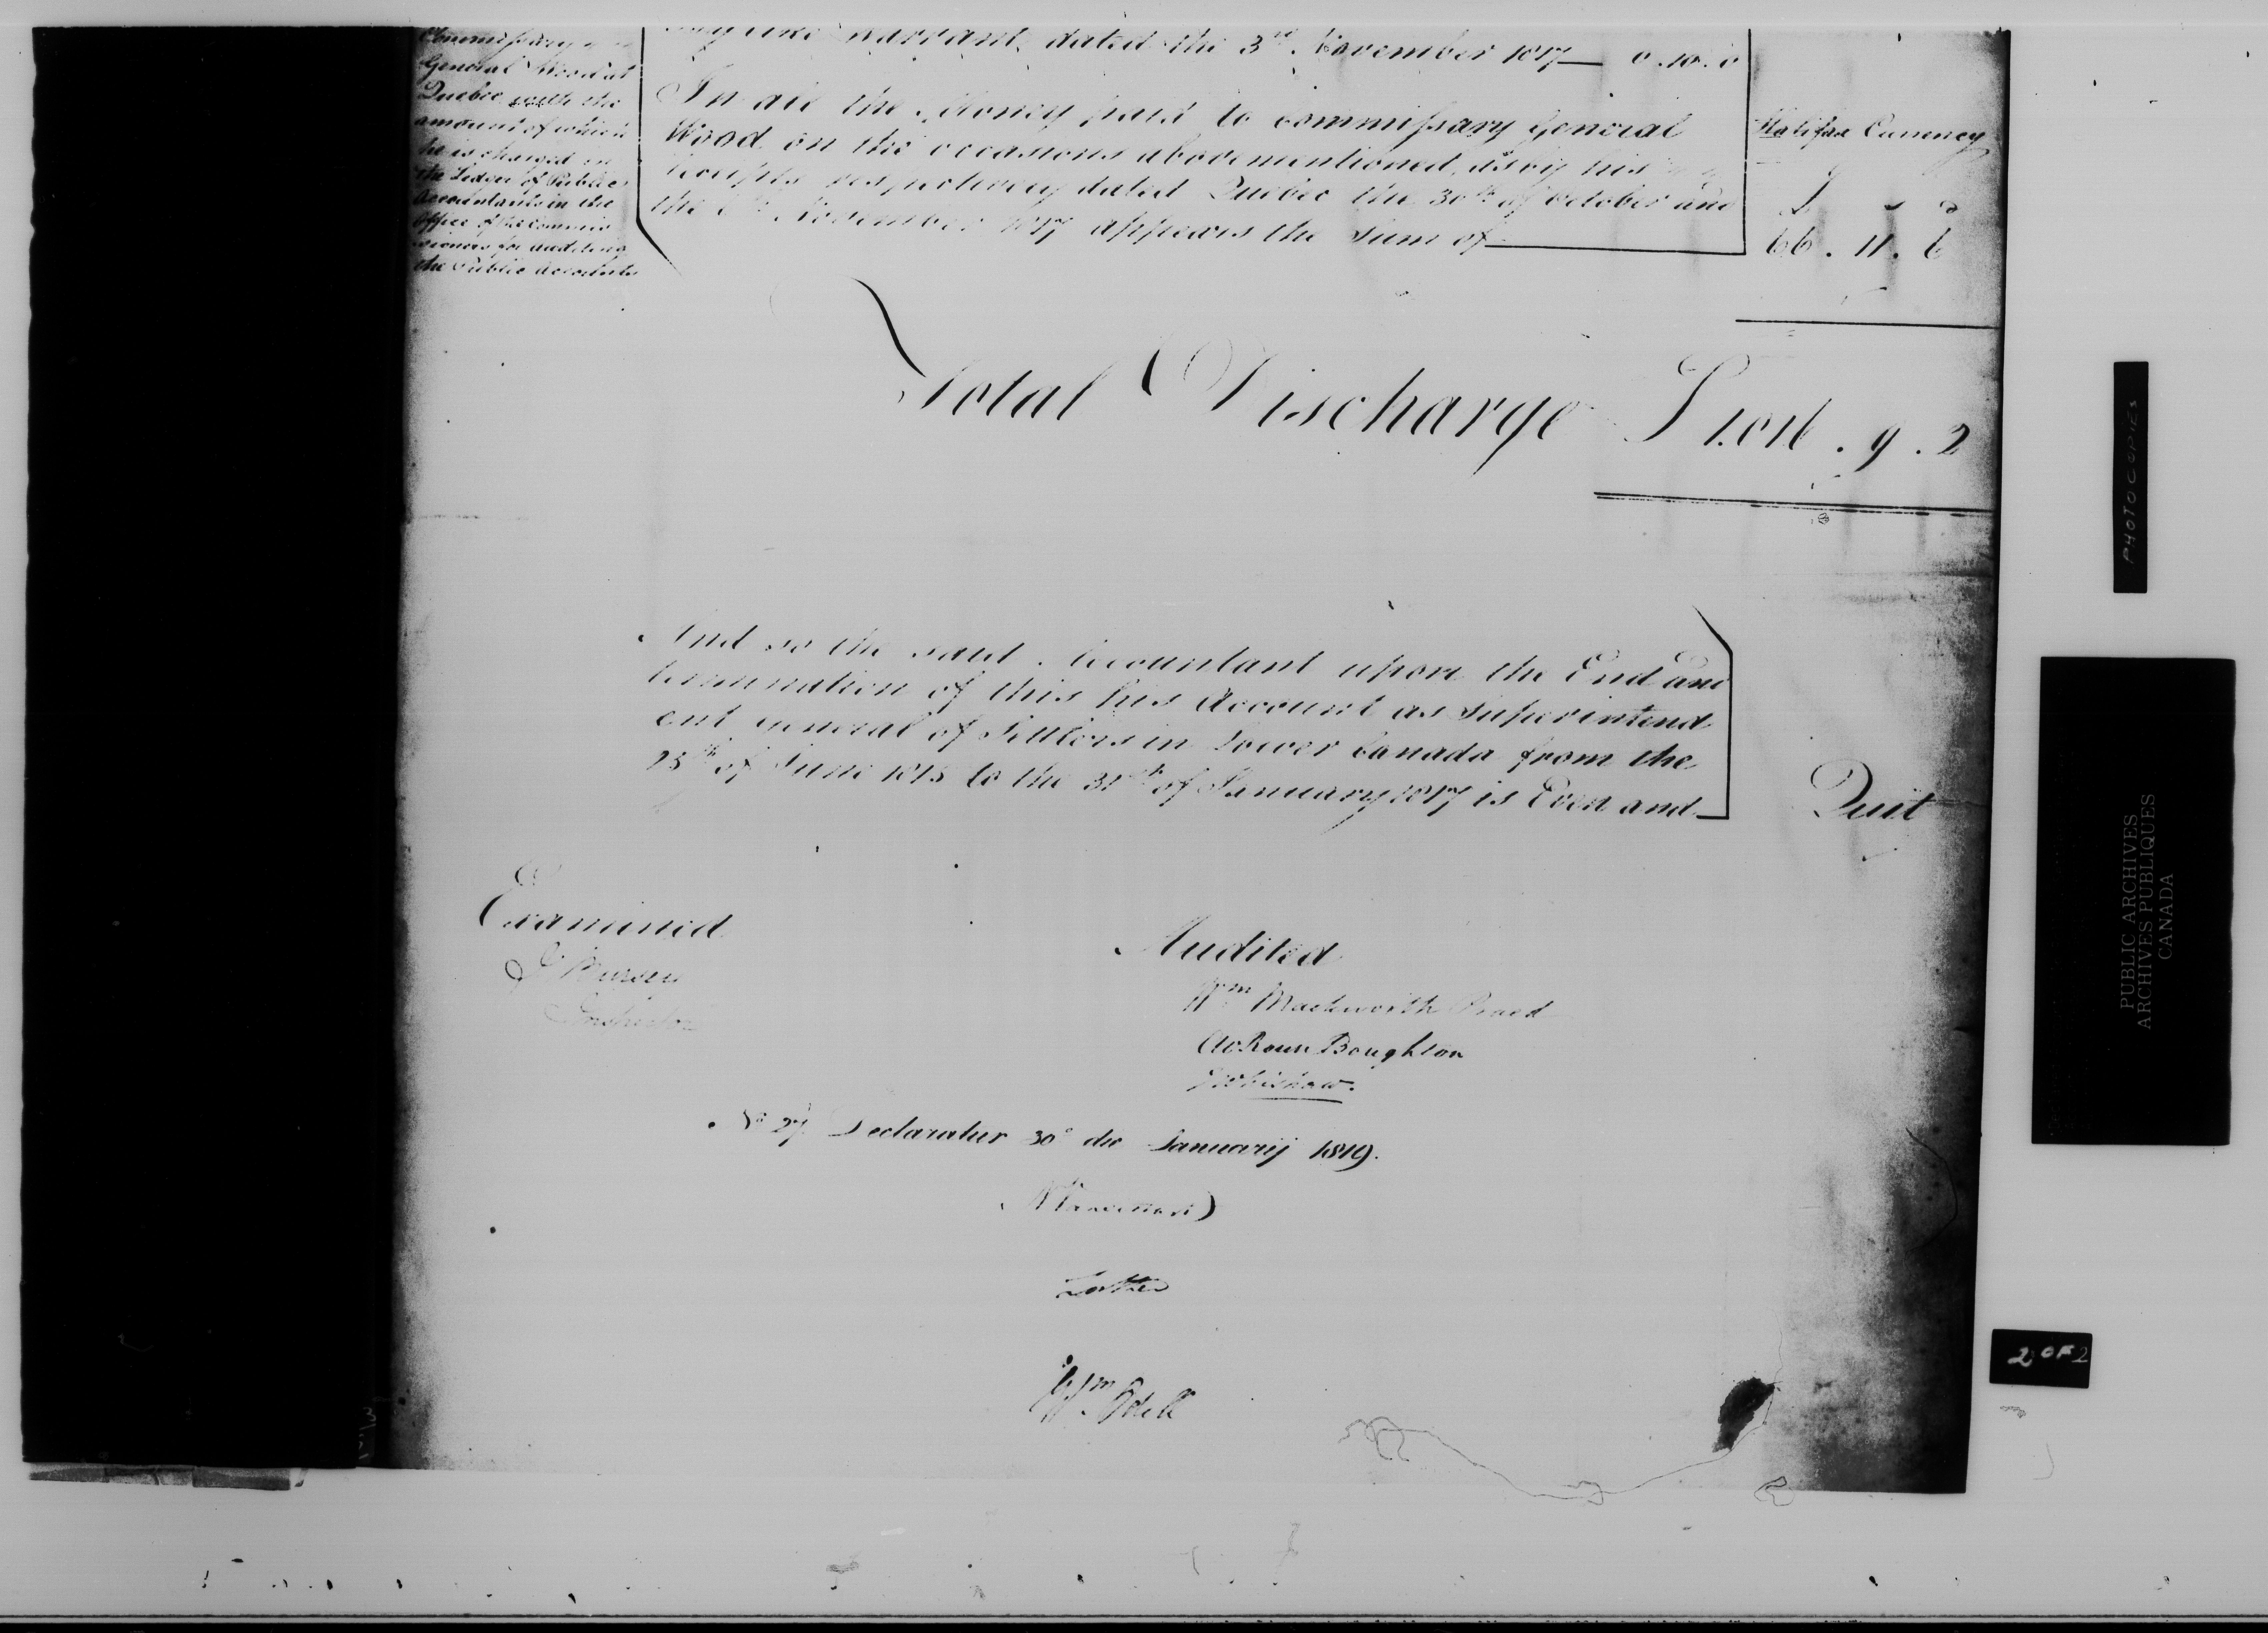 Commissary
General Wood at
Quebec with the
amount of which
he is charged in
the Ledger of Public
Accountants in the
Office of the Commis
sioners for auditing
the Public Accounts
like Warrant, dated the 3rd. November 1817 — 0.10.0
In all the Money paid to Commissary General
Wood on the occasions abovementioned, as by his
Receipts respectively dated Quebec the 30th of October and
the 6th November 1817 appears the Sum of
Halifax Currency
£ s d
66 . 11 . 6
Total Discharge
. 9 . 2
And so the said Accountant upon the End and
termination of this his Account as Superintend
ent General of Settlers in Lower Canada from the
25th of June 1815 to the 31st of January 1817 is Even and
Quit
Examined
Inspector
Audited
Wm Mackworth Praed
Rouse Boughton
No 27 Declaratur 30o die Januarij 1819.
N Vansittart
Wm Odell
PHOTOCOPIES
PUBLIC ARCHIVES
ARCHIVES PUBLIQUES
CANADA
2 OF 2